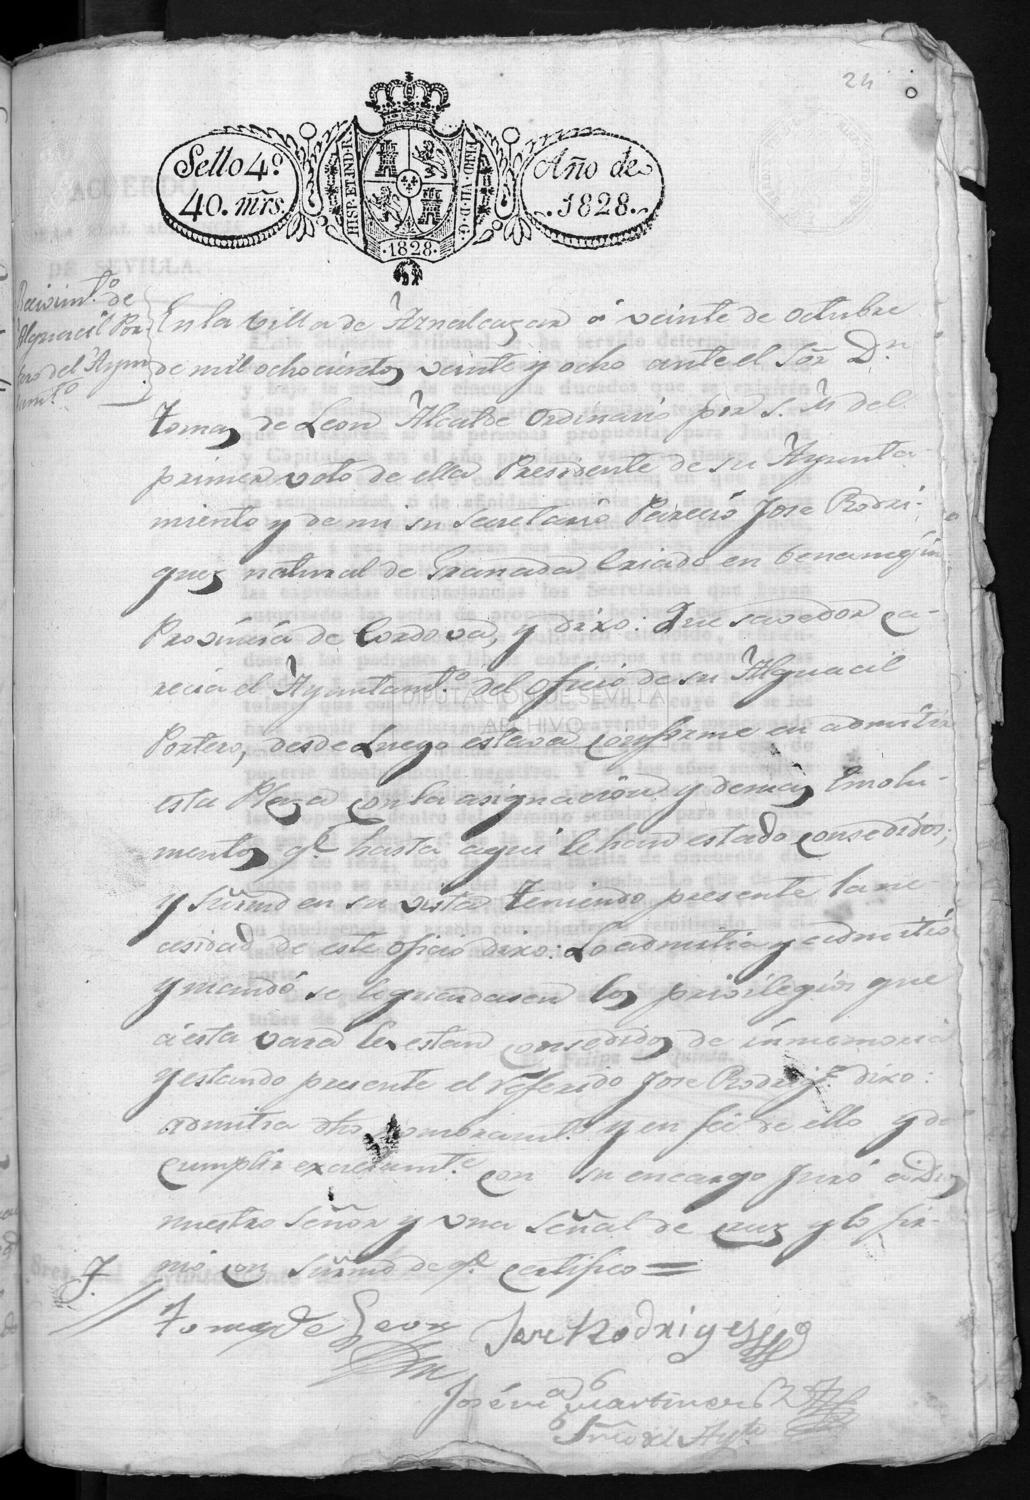 24
Sello 4º.
40. mrs.
HISP. ET IND. R.
FERD. VII. D. G.
·1828·
Año de
.1828.
Recivimto. de
Alguacil Por-
tero del Ayun
tamto.
En la villa de Aznalcazar á veinte de octubre
de mil ochocientos veinte y ocho ante el Sor. Dn.
Tomas de Leon Alcalde Ordinario por S. M. del
primer voto de ella Presidente de su Ayunta-
miento y de mi su Secretario Pareció Jose Rodri-
guez natural de Granada Criado en Benamegi
Provincia de Cordova, y dixo: Que savedor ca-
recia el Ayuntamto. del oficio de su Alguacil
Portero, desde Luego estava conforme en admitir
esta Plaza con la asignacion y demas Emolu-
mentos qe. hasta aqui le han estado consedidos;
y Sumrd en su vista Teniendo presente la ne-
cesidad de este oficio dixo: Lo admitia y admitió
y mandó se le guardasen los privilegios que
á esta vara le estan consedidos de inmemorial
y estando presente el referido Jose Rodrigz. dixo:
admitia dho nombramto. y en feé de ello y de
cumplir exactamte. con su encargo Juró a Dios
nuestro Señor y una señal de cruz y lo fir-
mó con Sumrd de qe. certifico =
Tomas de Leon
Jose Rodrigues
José Ma. Martinez
Srio del Ayto
DIPUTACION DE SEVILLA
ARCHIVO
ACUERDO
DE LA REAL AUDIENCIA
DE SEVILLA.